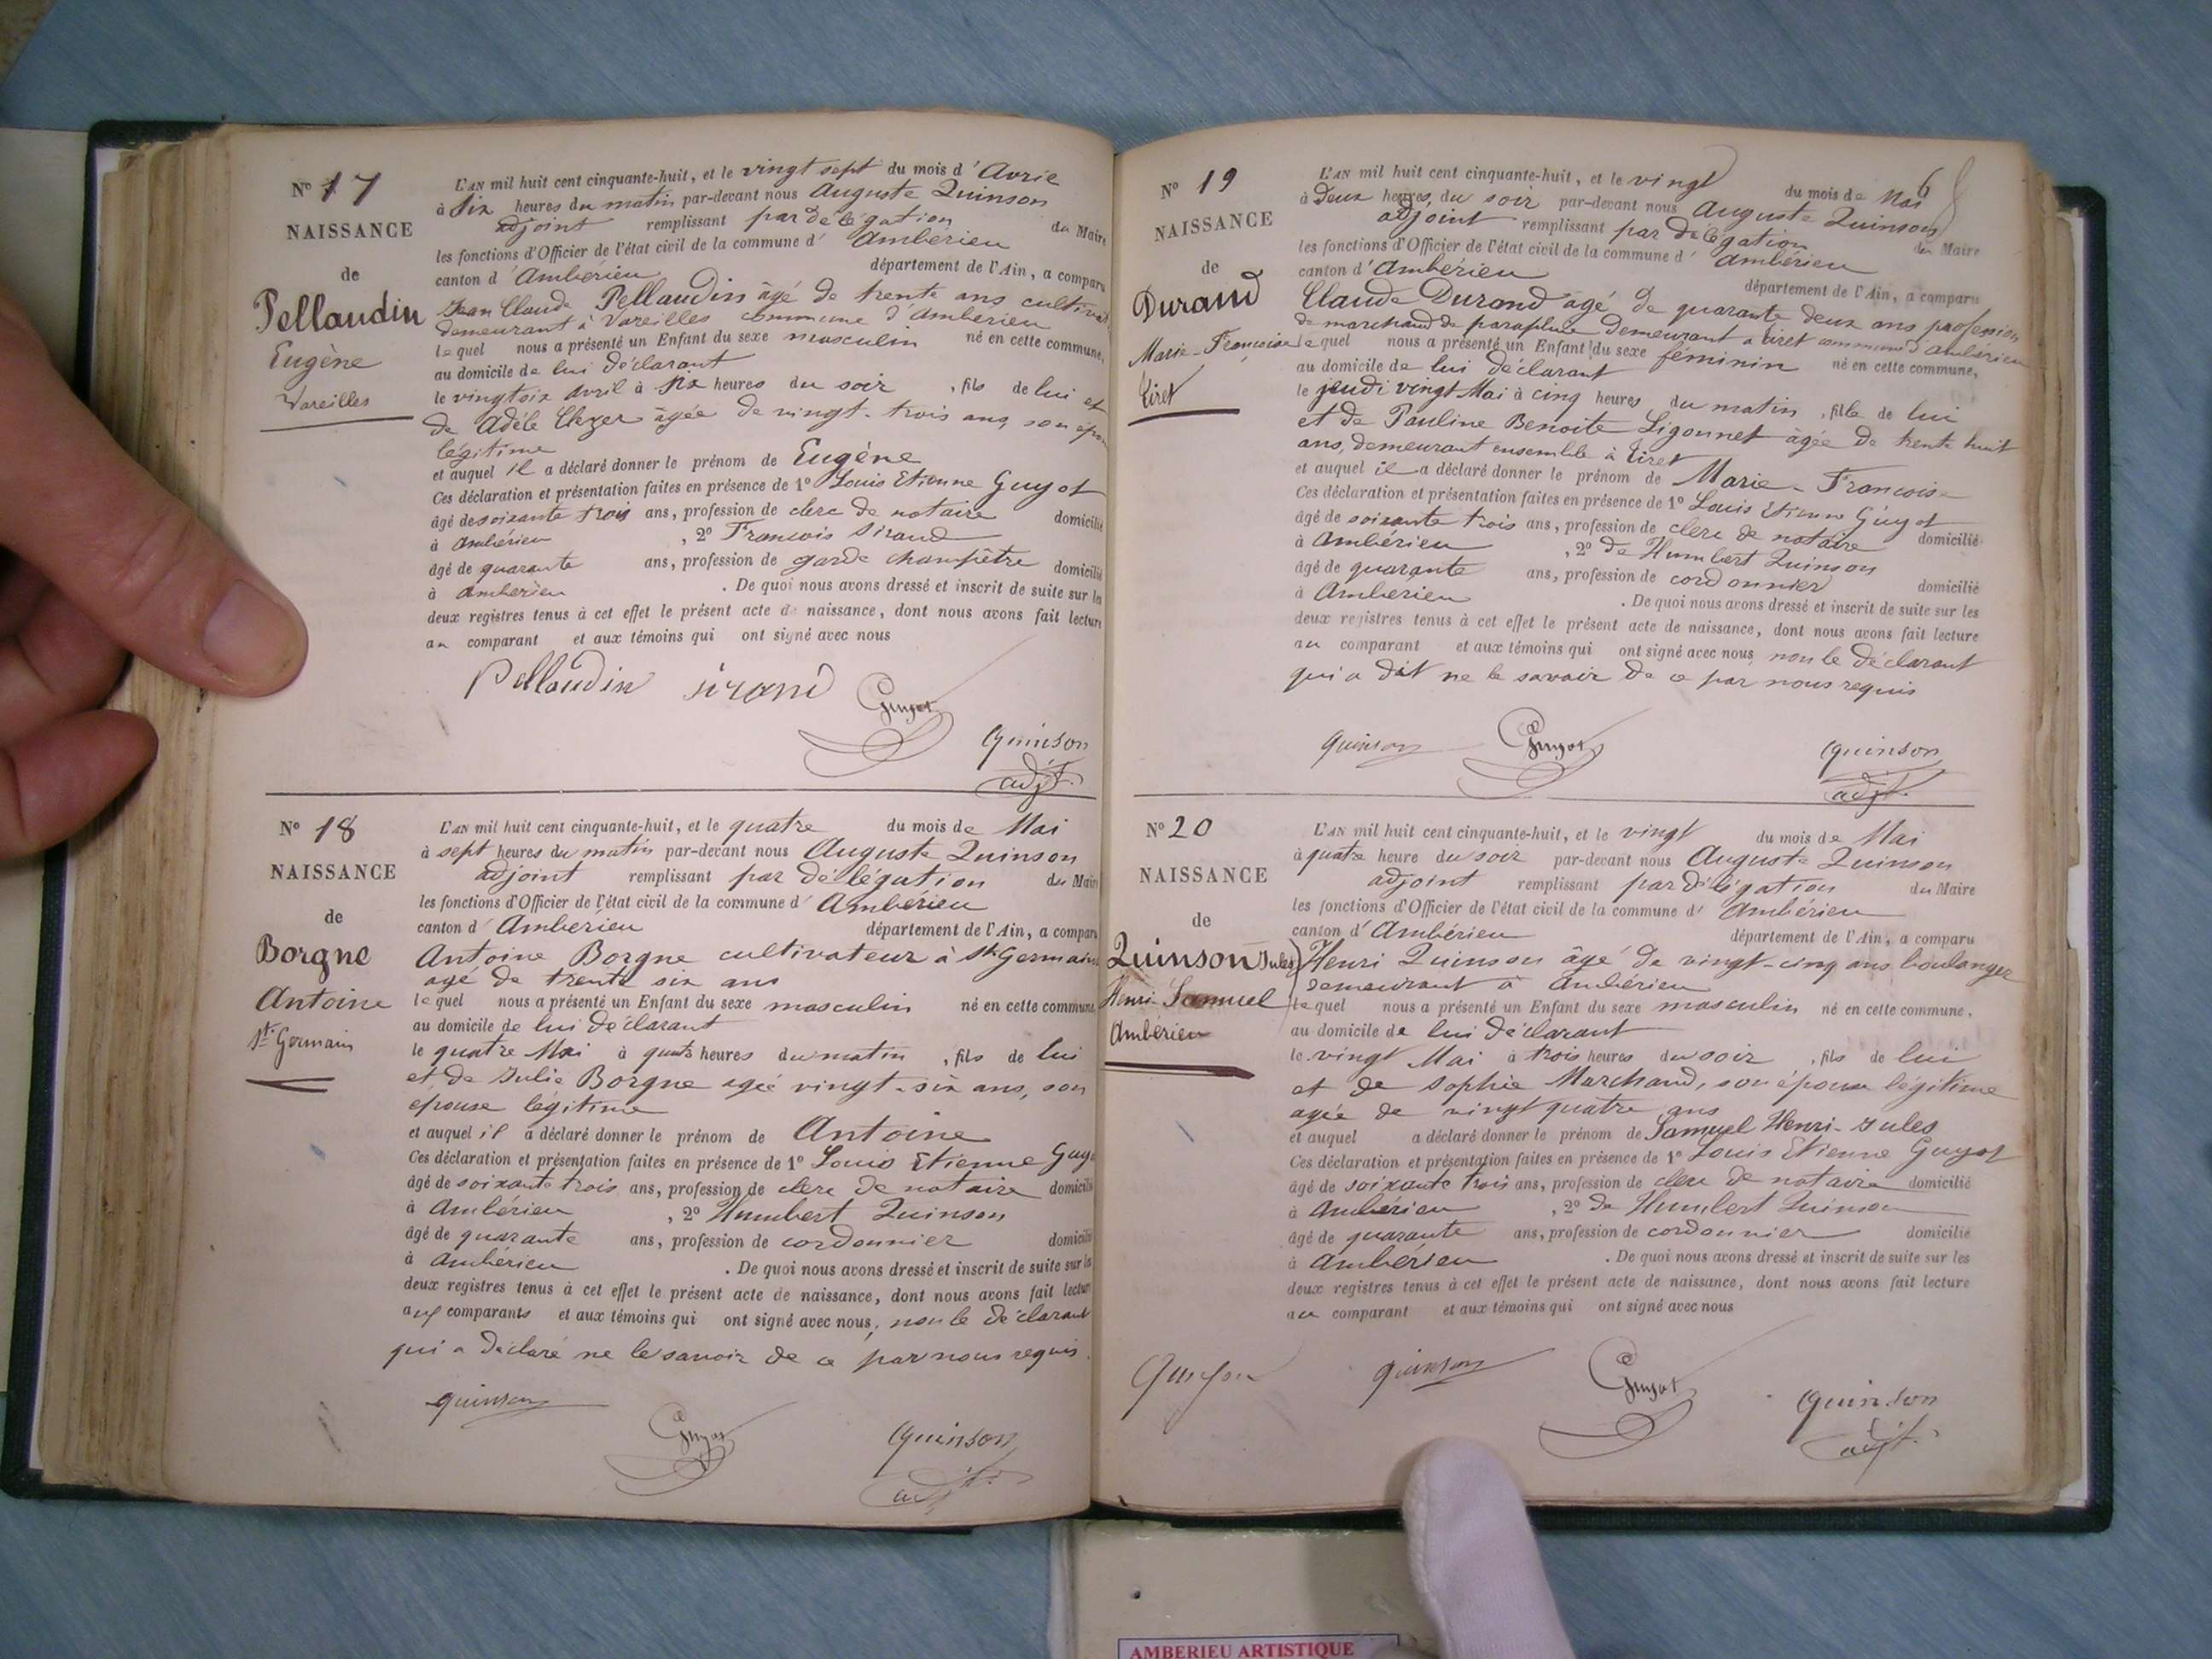 N° 17
NAISSANCE
de
Pellaudin
Eugène
Vareilles
L'AN mil huit cent cinquante-huit, et le vingt sept du mois d'Avril
à six heures du matin par-devant nous Auguste Quinson
adjoint remplissant par délégation du Maire
les fonctions d'Officier de l'état civil de la commune d'Ambérieu
canton d'Ambérieu département de l'Ain, a comparu
Jean Claude Pellaudin âgé de trente ans cultivat
demeurant à Vareilles commune d'Ambérieu
lequel nous a présenté un Enfant du sexe masculin né en cette commune,
au domicile de lui déclarant
le vingt six avril à six heures du soir, fils de lui et
de Adèle âgée de vingt-trois ans, son épou
légitime
et auquel il a déclaré donner le prénom de Eugène
Ces déclaration et présentation faites en présence de 1° Louis Etienne Guyot
âgé de soixante trois ans, profession de clerc de notaire domicilié
à Ambérieu, 2° François Sirand
âgé de quarante ans, profession de garde champêtre domicilié
à Ambérieu. De quoi nous avons dressé et inscrit de suite sur les
deux registres tenus à cet effet le présent acte de naissance, dont nous avons fait lecture
au comparant et aux témoins qui ont signé avec nous
Pellaudin Sirand Guyot
Quinson
adjt.
N° 18
NAISSANCE
de
Borgne
Antoine
St Germain
L'AN mil huit cent cinquante-huit, et le quatre du mois de Mai
à sept heures du matin par-devant nous Auguste Quinson
adjoint remplissant par délégation du Maire
les fonctions d'Officier de l'état civil de la commune d'Ambérieu
canton d'Ambérieu département de l'Ain, a comparu
Antoine Borgne cultivateur à St Germain
agé de trente six ans
lequel nous a présenté un Enfant du sexe masculin né en cette commune,
au domicile de lui déclarant
le quatre Mai à quatre heures du matin, fils de lui
et de Julie Borgne agée vingt-six ans, son
épouse légitime
et auquel il a déclaré donner le prénom de Antoine
Ces déclaration et présentation faites en présence de 1° Louis Etienne Guyo
âgé de soixante trois ans, profession de clerc de notaire domicilié
à Ambérieu, 2° Humbert Quinson
âgé de quarante ans, profession de cordonnier domicilié
à Ambérieu. De quoi nous avons dressé et inscrit de suite sur les
deux registres tenus à cet effet le présent acte de naissance, dont nous avons fait lecture
aux comparants et aux témoins qui ont signé avec nous, non le déclarant
qui a déclaré ne le savoir de ce par nous requis.
Quinson
Guyot Quinson
adjt.
6
N° 19
NAISSANCE
de
Durand
Marie-Françoise
Tiret
L'AN mil huit cent cinquante-huit, et le vingt du mois de Mai
à Deux heures, du soir par-devant nous Auguste Quinson
adjoint remplissant par délégation du Maire
les fonctions d'Officier de l'état civil de la commune d'Ambérieu
canton d'Ambérieu département de l'Ain, a comparu
Claude Durand âgé de quarante deux ans profession
de marchand de parapluie demeurant à Tiret commune d'Ambérieu
lequel nous a présenté un Enfant du sexe féminin né en cette commune,
au domicile de lui déclarant
le jeudi vingt Mai à cinq heures du matin, fille de lui
et de Pauline Benoite Ligonnet âgée de trente huit
ans, demeurant ensemble à Tiret
et auquel il a déclaré donner le prénom de Marie-Françoise
Ces déclaration et présentation faites en présence de 1° Louis Etienne Guyot
âgé de soixante trois ans, profession de clerc de notaire domicilié
à Ambérieu, 2° de Humbert Quinson
âgé de quarante ans, profession de cordonnier domicilié
à Ambérieu. De quoi nous avons dressé et inscrit de suite sur les
deux registres tenus à cet effet le présent acte de naissance, dont nous avons fait lecture
au comparant et aux témoins qui ont signé avec nous, non le déclarant
qui a dit ne le savoir de ce par nous requis
Quinson Guyot Quinson
adjt.
N° 20
NAISSANCE
de
Quinson Jules
Henri Samuel
Ambérieu
L'AN mil huit cent cinquante-huit, et le vingt du mois de Mai
à quatre heure du soir par-devant nous Auguste Quinson
adjoint remplissant par délégation du Maire
les fonctions d'Officier de l'état civil de la commune d'Ambérieu
canton d'Ambérieu département de l'Ain, a comparu
Henri Quinson âgé de vingt-cinq ans boulanger
demeurant à Ambérieu
lequel nous a présenté un Enfant du sexe masculin né en cette commune,
au domicile de lui déclarant
le vingt Mai à trois heures du soir, fils de lui
et de Sophie Marchand, son épouse légitime
agée de vingt quatre ans
et auquel a déclaré donner le prénom de Samuel Henri-Jules
Ces déclaration et présentation faites en présence de 1° Louis Etienne Guyot
âgé de soixante trois ans, profession de clerc de notaire domicilié
à Ambérieu, 2° de Humbert Quinson
âgé de quarante ans, profession de cordonnier domicilié
à Ambérieu. De quoi nous avons dressé et inscrit de suite sur les
deux registres tenus à cet effet le présent acte de naissance, dont nous avons fait lecture
au comparant et aux témoins qui ont signé avec nous
Quinson Quinson Guyot Quinson
adjt.
AMBERIEU ARTISTIQUE